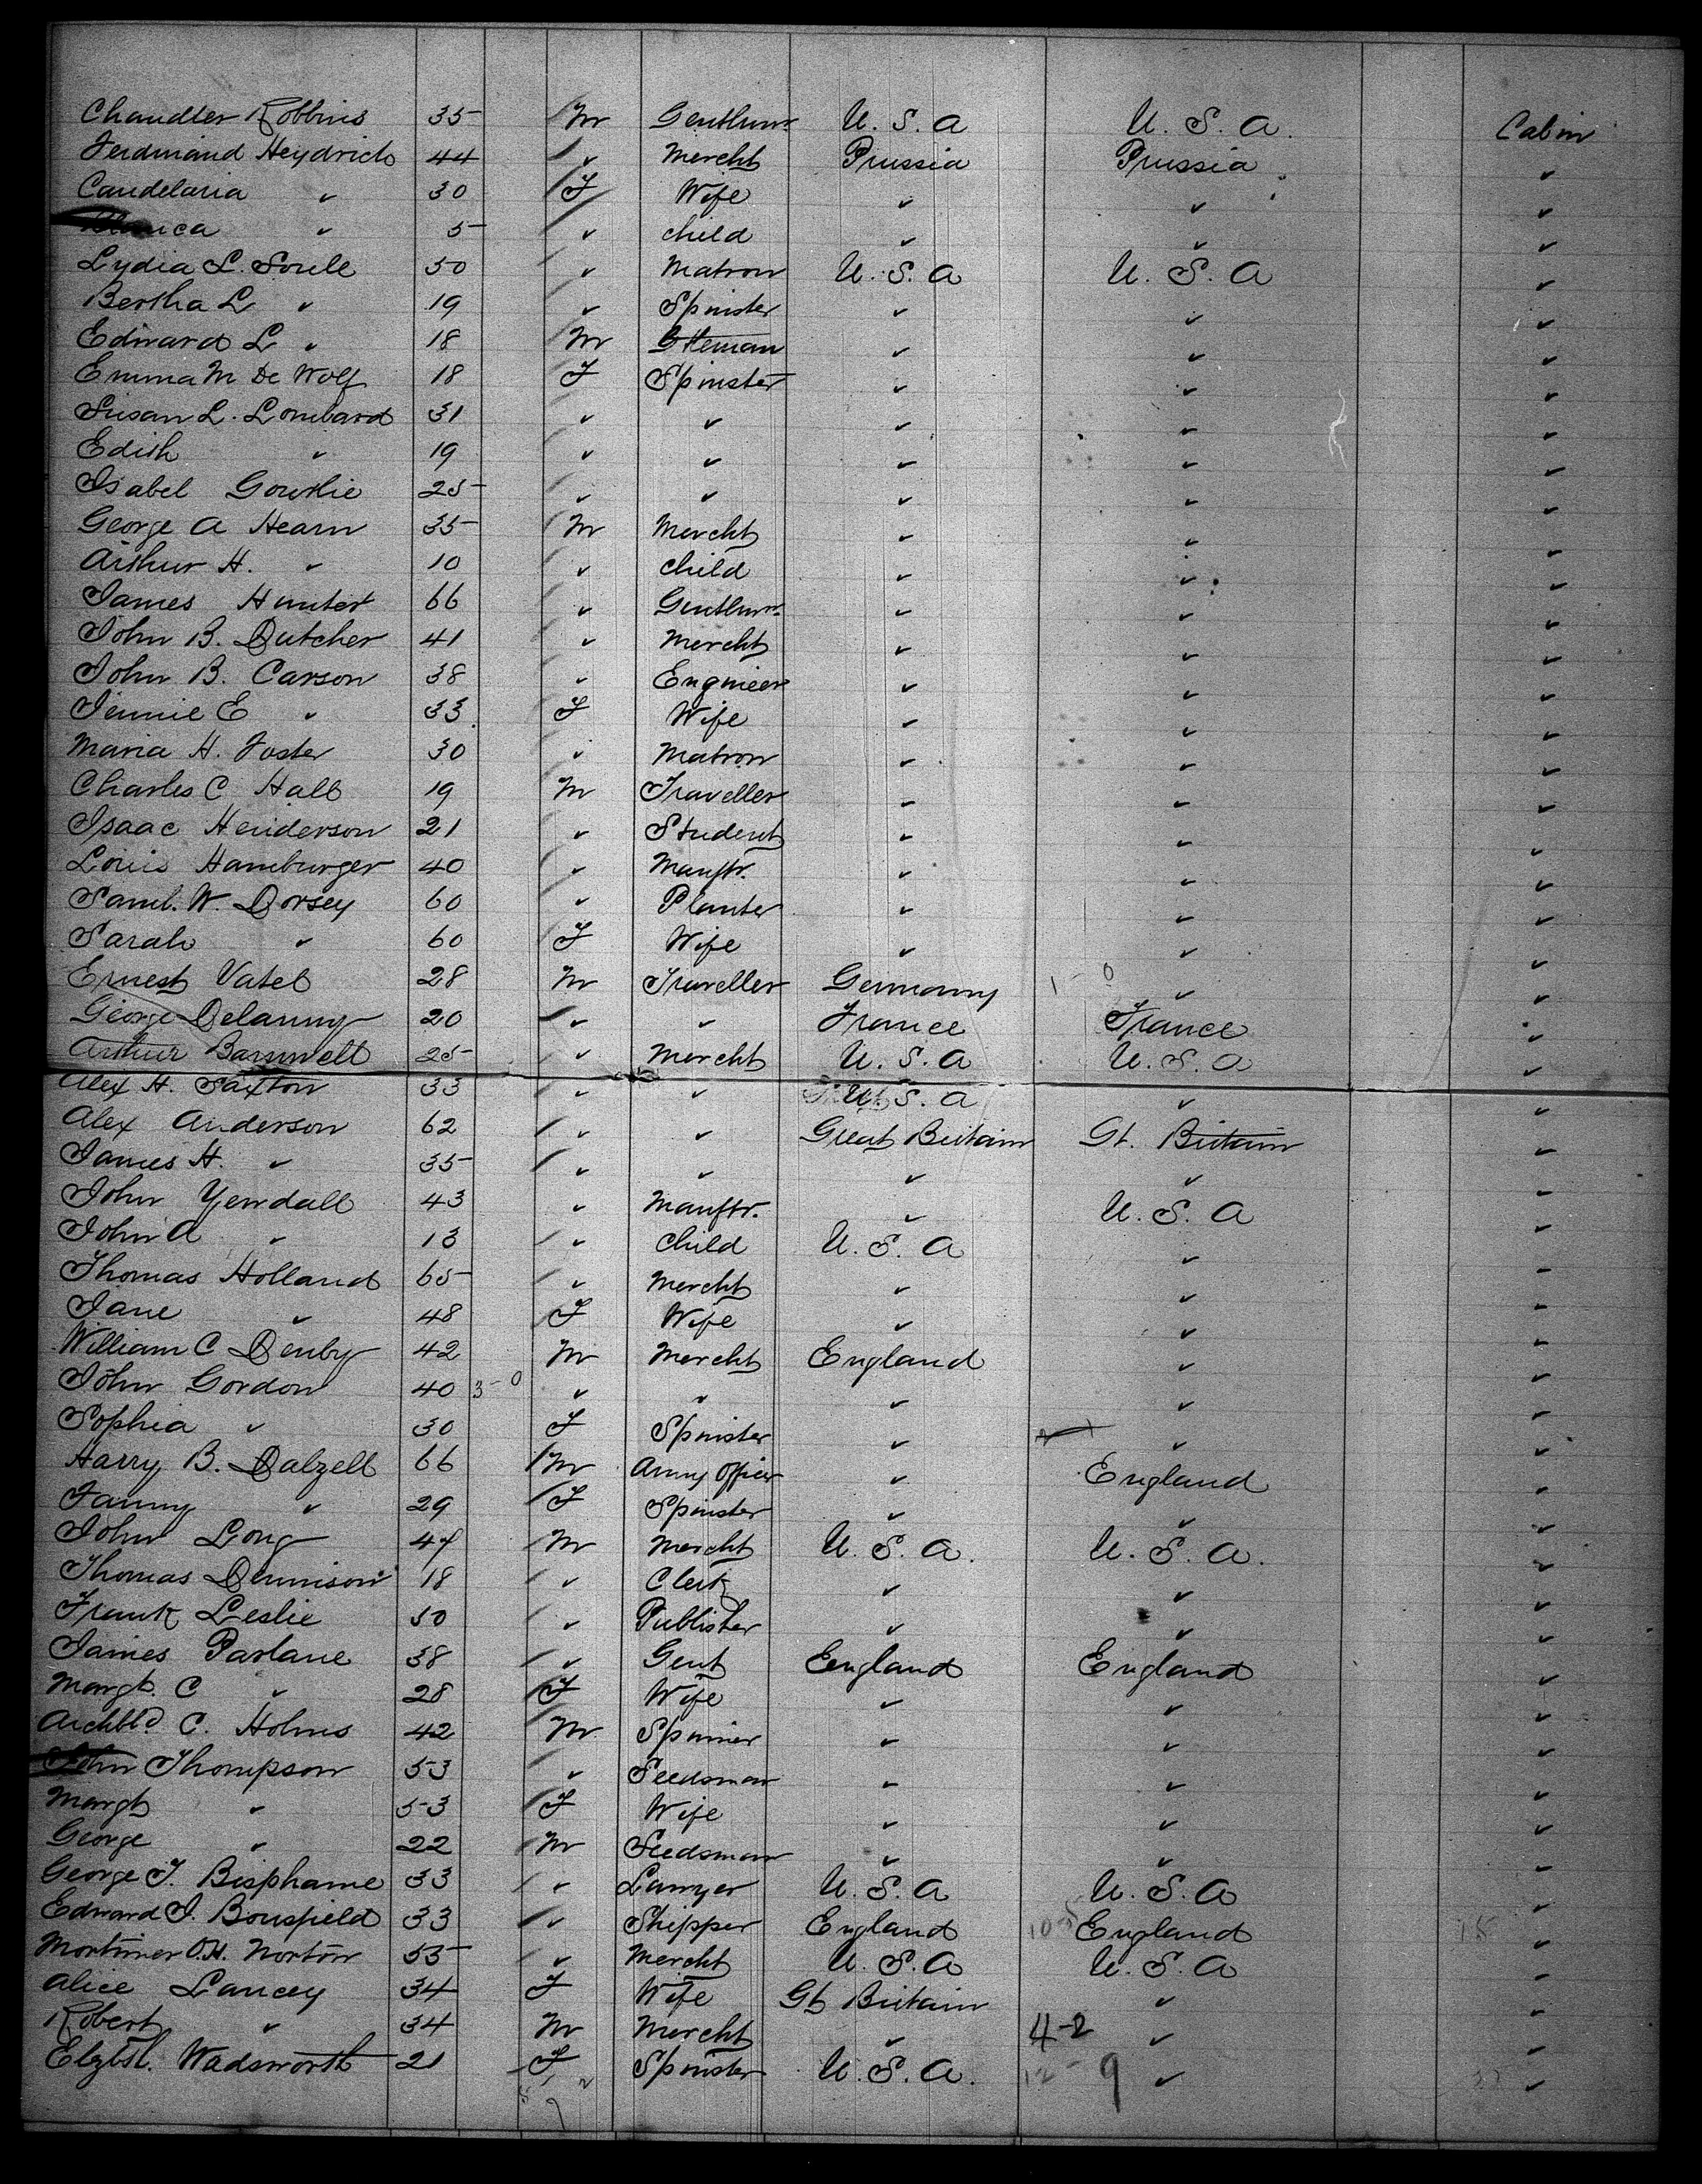 Chandler Robbins 35 M Gentlmn. U. S. A U. S. A. Cabin
Ferdinand Heydrich 44 " Mercht Prussia Prussia "
Candelaria " 30 F Wife " " "
" 5 " child " " "
Lydia L. Soule 50 " Matron U. S. A U. S. A "
Bertha L " 19 " Spinster " " "
Edward L " 18 M Gtleman " " "
Emma M De Wolf 18 F Spinster " " "
Susan L. Lombard 31 " " " " "
Edith " 19 " " " " "
Isabel Gourlie 25 " " " " "
George A Hearn 35 M Mercht " " "
Arthur H. " 10 " child " " "
James Hunter 66 " Gentlmn. " " "
John B. Dutcher 41 " Mercht " " "
John B. Carson 38 " Engineer " " "
Jennie E " 33 F Wife " " "
Maria H. Foster 30 " Matron " " "
Charles C Hall 19 M Traveller " " "
Isaac Henderson 21 " Student " " "
Louis Hamburger 40 " Manftr. " " "
Saml. W. Dorsey 60 " Planter " " "
Sarah " 60 F Wife " " "
Ernest Vatel 28 M Traveller Germany " "
George Delanny 20 " " France France "
Arthur Barnwell 25 " Mercht U. S. A U. S. A "
Alex H. Saxton 33 " " U. S. A " "
Alex Anderson 62 " " Great Britain Gt. Britain "
James H. " 35 " " " " "
John Yewdall 43 " Manftr. " U. S. A "
John A " 13 " Child U. S. A " "
Thomas Holland 65 " Mercht " " "
Jane " 48 F Wife " " "
William C Denby 42 M Mercht England " "
John Gordon 40 3-0 " " " " "
Sophia " 30 F Spinster " " "
Harry B. Dalzell 66 M Army Officer " England "
Fanny " 29 F Spinster " " "
John Long 47 M Mercht U. S. A. U. S. A. "
Thomas Dennison 18 " Clerk " " "
Frank Leslie 50 " Publisher " " "
James Parlane 38 " Gent England England "
Margt. C " 28 F Wife " " "
Archbld. C. Holms 42 M Spinner " " "
John Thompson 53 " Seedsman " " "
Margt " 53 F Wife " " "
George " 22 M Seedsman " " "
George T. Bisphame 33 " Lawyer U. S. A U. S. A "
Edward J. Bousfield 33 " Shipper England England "
Mortimer O.H. Norton 55 " Mercht U. S. A U. S. A "
Alice Lancey 34 F Wife Gt Britain " "
Robert " 34 M Mercht " 4-2 " "
Elzbt. Wadsworth 21 F Spinster U. S. A. 9 " "